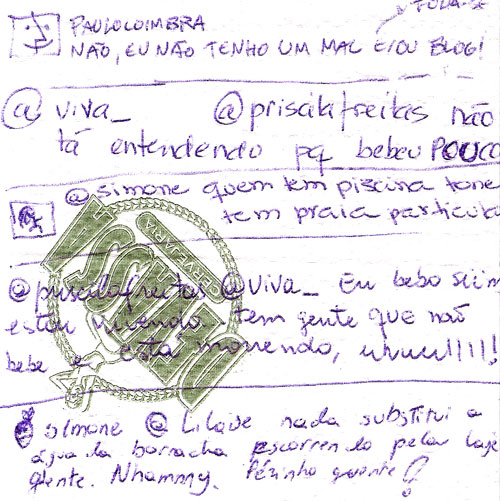 FODA-SE
PAULOCOIMBRA
NÃO, EU NÃO TENHO UM MAC E/OU BLOG!
@ viva_ @priscilafreitas não
tá entendendo pq bebeu POUCO
@simone quem tem piscina tone
tem praia particula
CERVEJARIA
@priscilafreitas @viva_ Eu bebo siim
estou vivendo.. tem gente que não
bebe e está morrendo, uvuuu!!!!!
simone @ Lilave nada substitui a
água da borracha escorrendo pela laje
qente. Nhammy. Pézinho quente!